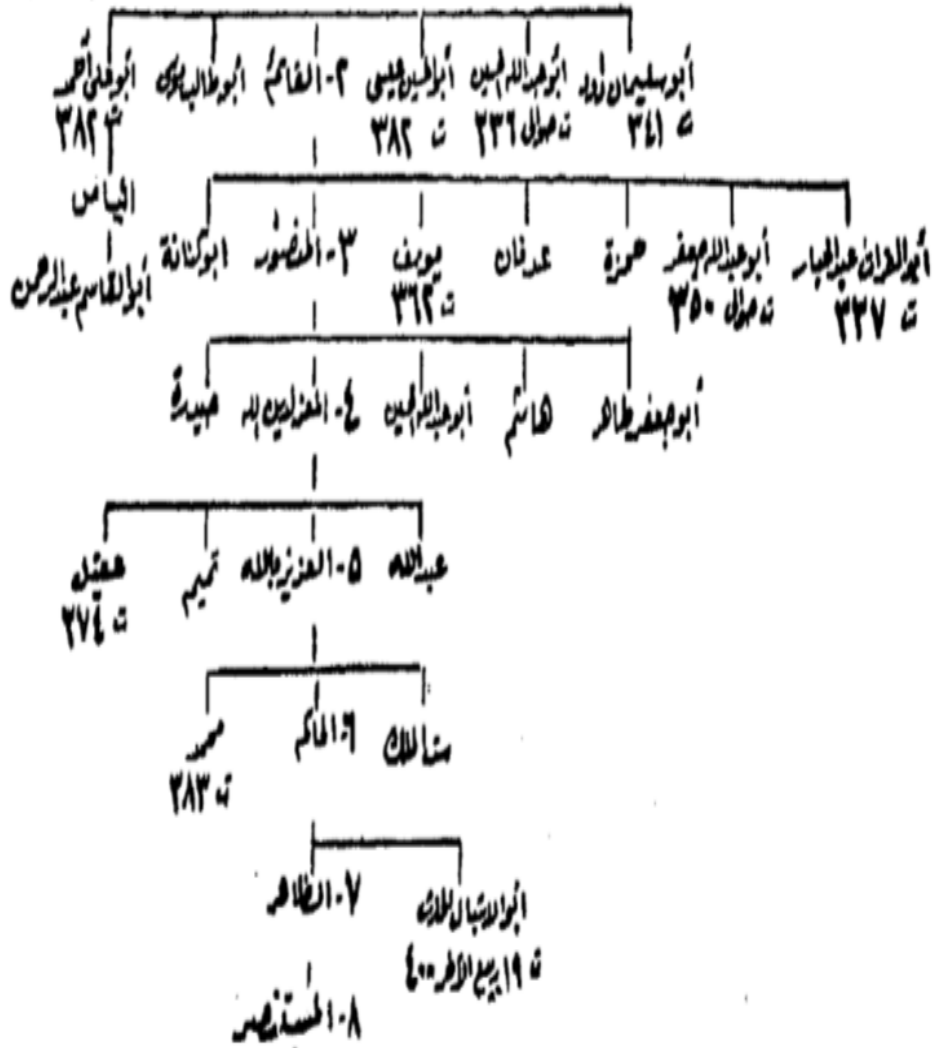 أبو سليمان داود
ت ٣٤١
أبو عبد الله الحسين
ت حوالى ٣٣٦
أبو الحسين عيسى
ت ٣٨٢
٢- القائم
أبو طالب موسى
أبو على أحمد
ت ٣٨٢
الياس
أبو القاسم عبد الرحمن
عبد الجبار
ت ٣٣٧
أبو عبد الله جعفر
ت حوالى ٣٥٠
حمزة
عدنان
يوسف
ت ٣٦٢
٣- المنصور
أبو كنانة
أبو جعفر طاهر
هاشم
أبو عبد الله الحسين
٤- المعز لدين الله
حيدرة
عبد الله
٥- العزيز بالله
تميم
عقيل
ت ٣٧٤
ست الملك
٦- الحاكم
محمد
ت ٣٨٣
٧- الظاهر
ت ١٩ ربيع الآخر ٤٠٠
٨- المستنصر